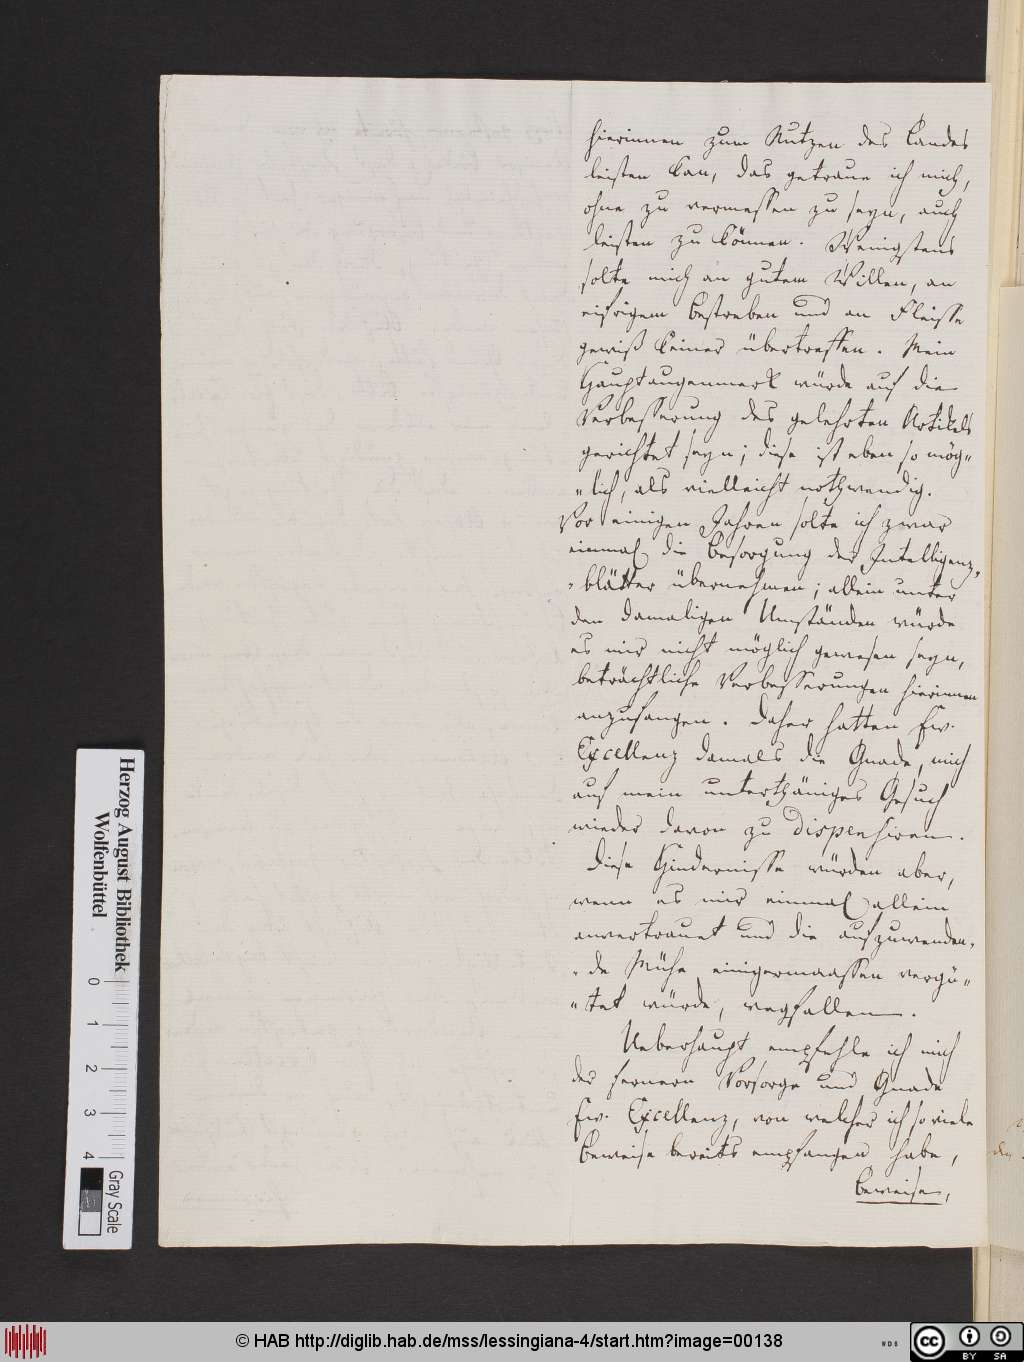 hierinnen zum Nutzen des Landes
leisten kan, das getraue ich mich,
ohne zu vermessen zu seyn, auch
leisten zu können. Wenigstens
solte mich an gutem Willen, an
eifrigem Bestreben und an Fleisse
gewiß keiner übertreffen. Mein
Hauptaugenmerk würde auf die
Verbesserung des gelehrten Artikels
gerichtet seyn; diese ist eben so mög„
„lich, als vielleicht nothwendig.
Vor einigen Jahren solte ich zwar
einmal die Besorgung der Intelligenz„
„blätter übernehmen; allein unter
den damaligen Umständen würde
es mir nicht möglich gewesen seyn,
beträchtliche Verbesserungen hierinnen
anzufangen. Daher hatten Ew.
Excellenz damals die Gnade, mich
auf mein unterthäniges Gesuch
wieder davon zu dispensiren.
Diese Hindernisse würden aber,
wenn es mir einmal allein
anvertrauet und die aufzuwenden„
„de Mühe einigermaassen vergü„
„tet würde, wegfallen.
Ueberhaupt empfehle ich mich
der fernern Vorsorge und Gnade
Ew. Excellenz, von welcher ich so viele
Beweise bereits empfangen habe,
Beweise,
Herzog August Bibliothek
Wolfenbüttel
0 1 2 3 4
Gray Scale
© HAB http://diglib.hab.de/mss/lessingiana-4/start.htm?image=00138
WDB
cc BY SA